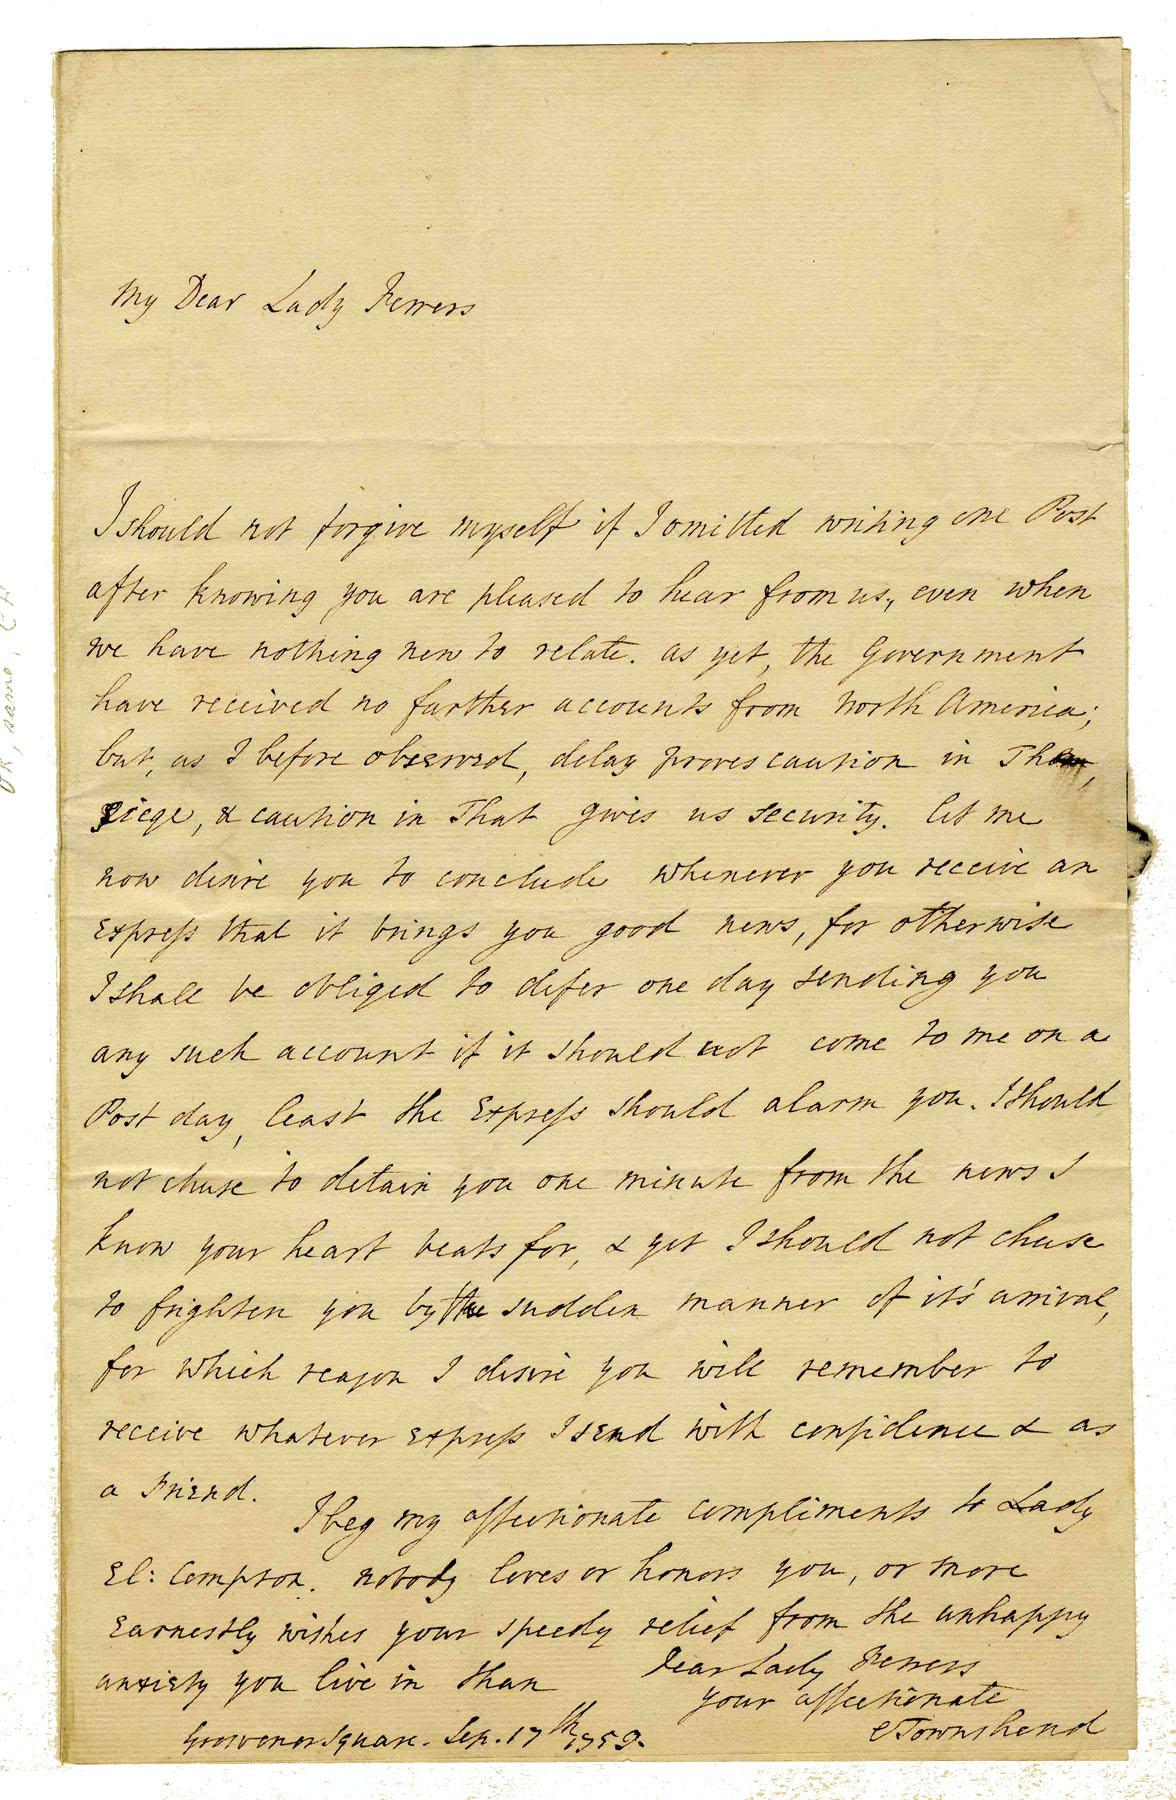 My Dear Lady Ferrers
I should not forgive myself if I omitted writing one Post
after knowing you are pleased to hear from us, even when
we have nothing new to relate. as yet, the Government
have received no farther accounts from North America;
but, as I before observed, delay proves caution in
Siege, & caution in That gives us security. let me
now desire you to conclude whenever you receive an
Express that it brings you good news, for otherwise
I shall be obliged to defer one day sending you
any such account if it should not come to me on a
Post day, least the Express should alarm you. I should
not chuse to detain you one minute from the news I
know your heart beats for, & yet I should not chuse
to frighten you by the sudden manner of it's arrival,
for which reason I desire you will remember to
receive whatever Express I send with confidence & as
a Friend.
I beg my affectionate compliments to Lady
El: Compton. nobody loves or honors you, or more
Earnestly wishes your speedy relief from the unhappy
anxiety you live in than
Dear Lady Ferrers
your affectionate
CTownshend
Grosvenor Square. Sep. 17th 1759.